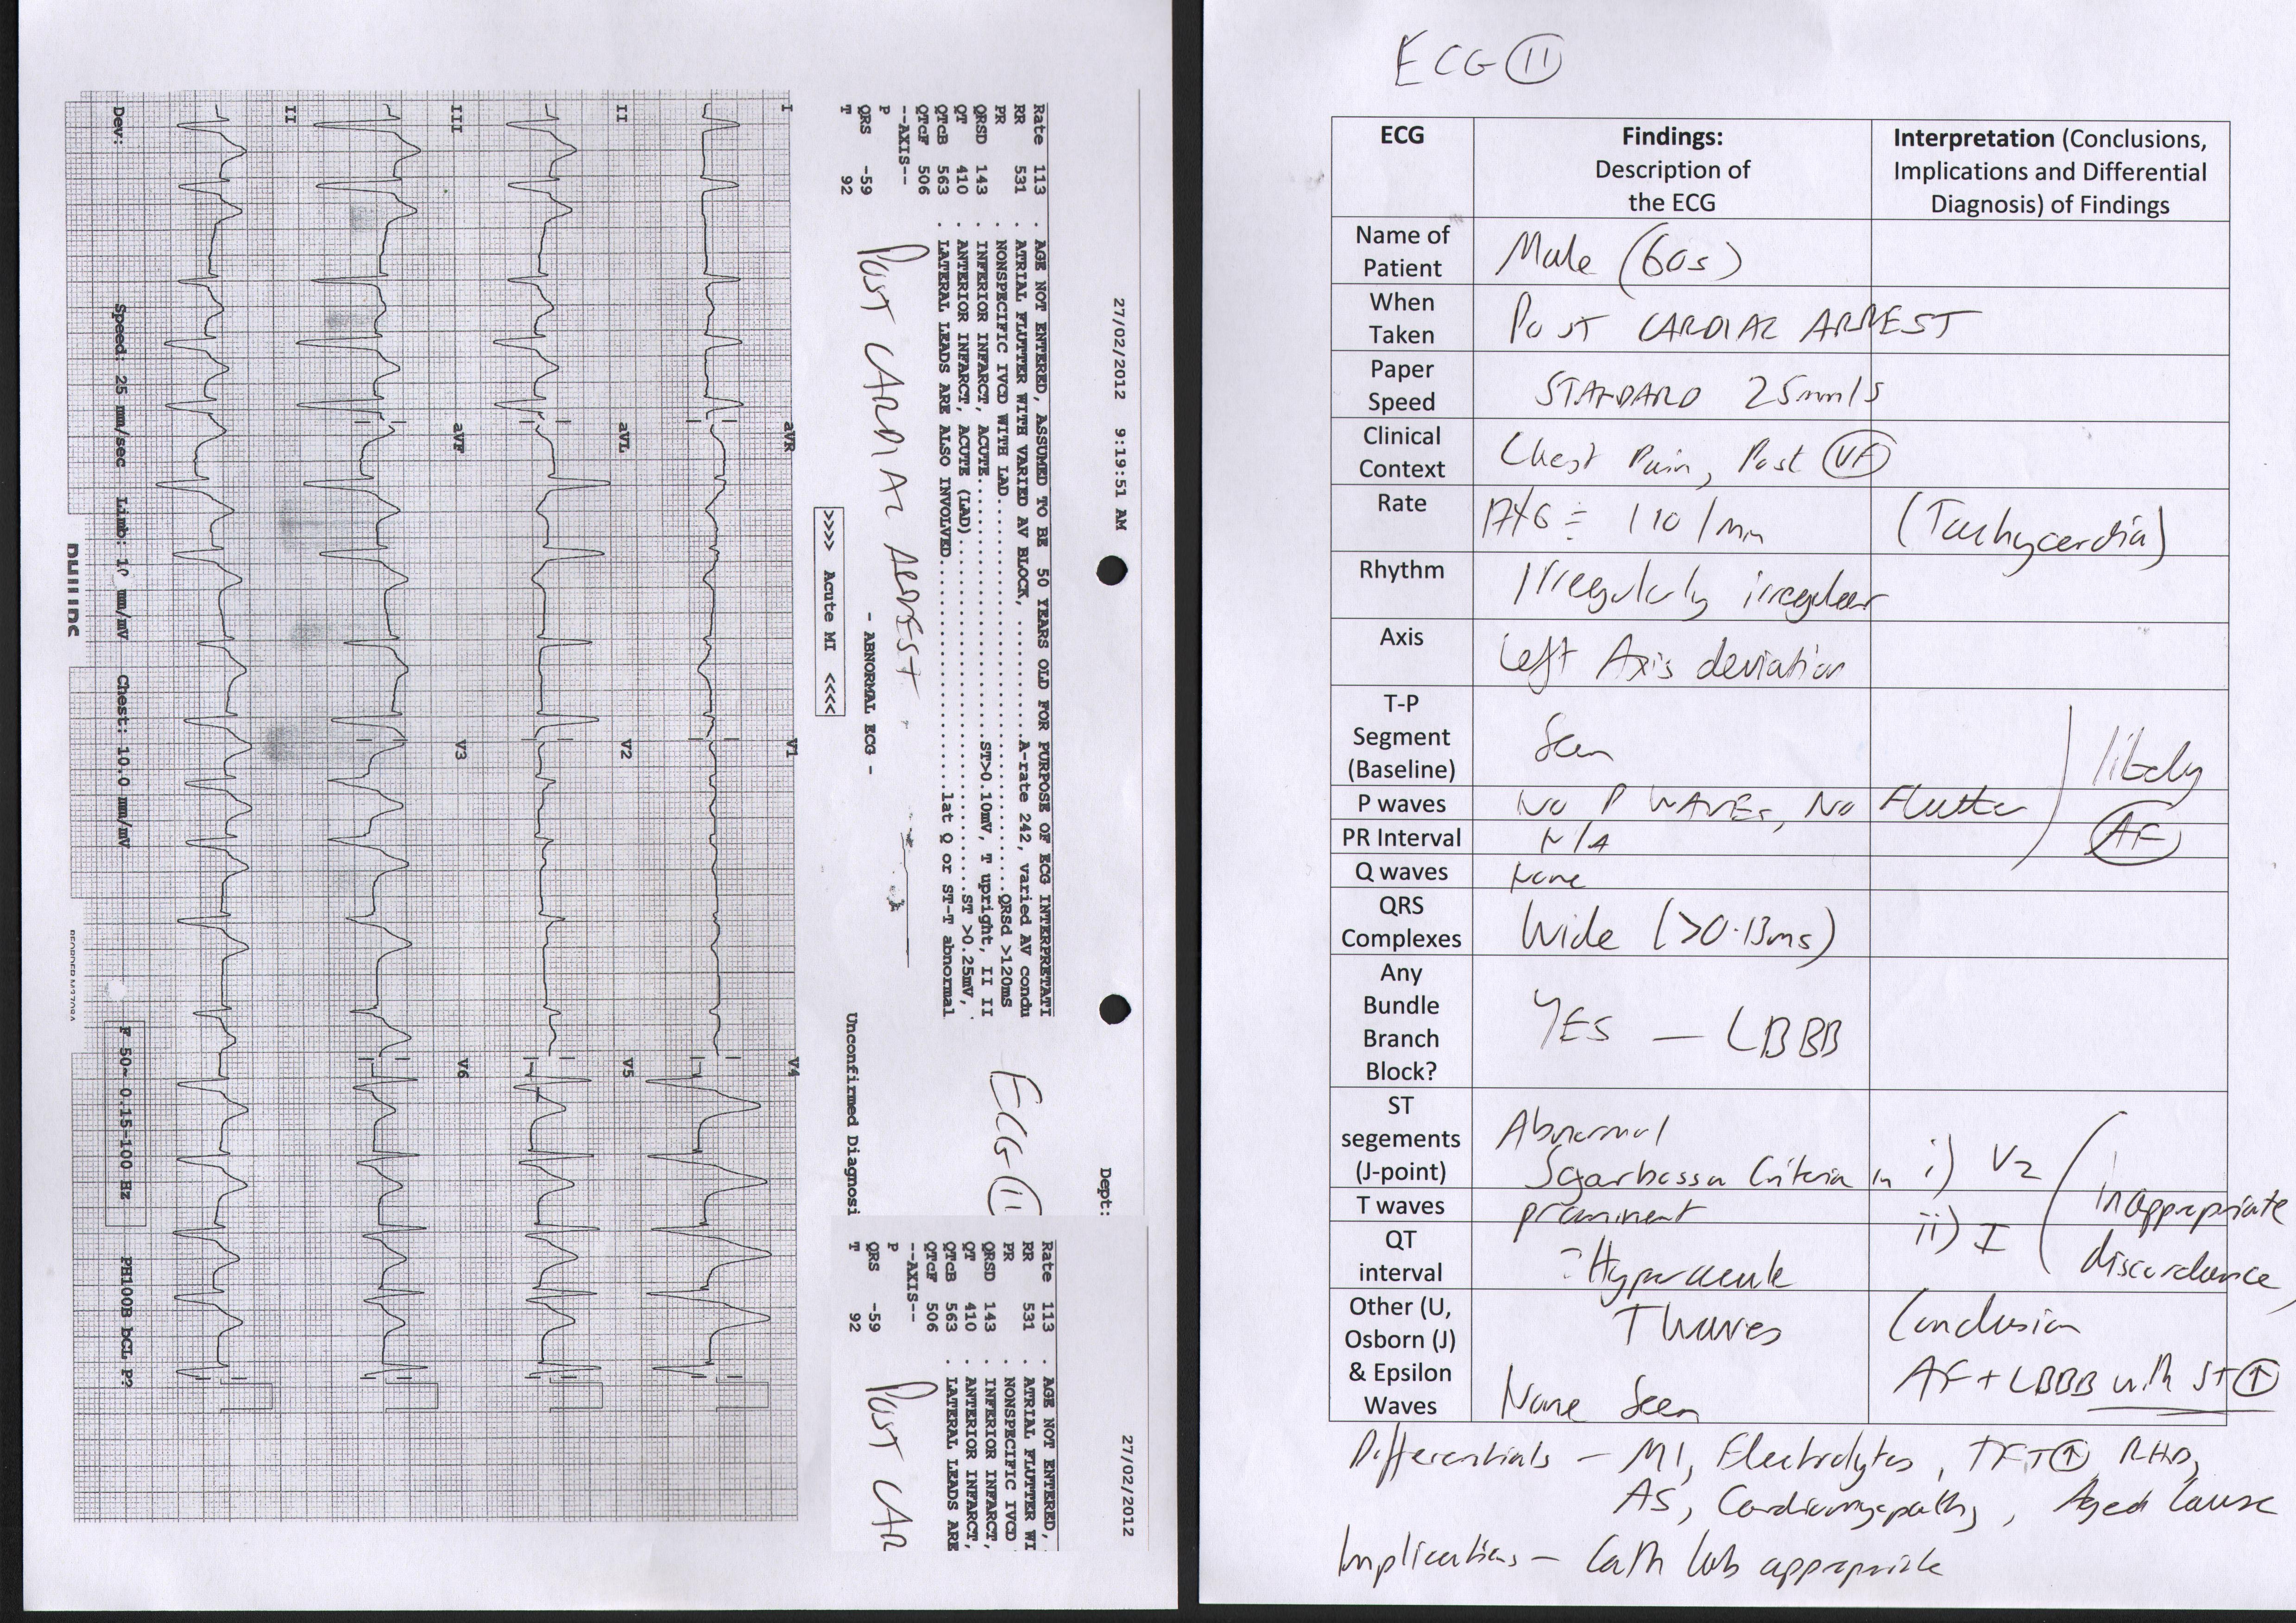 27/02/2012 9:19:51 AM
Dept:
Rate 113 . AGE NOT ENTERED, ASSUMED TO BE 50 YEARS OLD FOR PURPOSE OF ECG INTERPRETATI
RR 531 . ATRIAL FLUTTER WITH VARIED AV BLOCK, ..........A-rate 242, varied AV condu
PR . NONSPECIFIC IVCD WITH LAD..........QRSd >120mS
QRSD 143 . INFERIOR INFARCT, ACUTE..........ST>0.10mV, T upright, II II
QT 410 . ANTERIOR INFARCT, ACUTE (LAD)..........ST >0.25mV,
QTcB 563 . LATERAL LEADS ARE ALSO INVOLVED..........lat Q or ST-T abnormal
QTcF 506
--AXIS--
P
QRS -59
T 92
ECG 11
POST CARDIAC ARREST
- ABNORMAL ECG -
>>>> Acute MI <<<<
Unconfirmed Diagnosi
27/02/2012
Rate 113 . AGE NOT ENTERED,
RR 531 . ATRIAL FLUTTER WI
PR . NONSPECIFIC IVCD
QRSD 143 . INFERIOR INFARCT,
QT 410 . ANTERIOR INFARCT,
QTcB 563 . LATERAL LEADS ARE
QTcF 506
--AXIS--
P
QRS -59
T 92
POST CAR
I aVR V1 V4
II aVL V2 V5
III aVF V3 V6
II
Dev: Speed: 25 mm/sec Limb: 10 mm/mV Chest: 10.0 mm/mV F 50~ 0.15-100 Hz PH100B bCL P?
ECG 11
ECG
Findings:
Description of
the ECG
Interpretation (Conclusions,
Implications and Differential
Diagnosis) of Findings
Name of
Patient
Male (60s)
When
Taken
POST CARDIAC ARREST
Paper
Speed
STANDARD 25mm/s
Clinical
Context
Chest Pain, Post VF
Rate
110/min
(Tachycardia)
Rhythm
Irregularly irregular
Axis
Left Axis deviation
T-P
Segment
(Baseline)
Seen
likely
AF
P waves
NO P WAVES, NO Flutter
PR Interval
N/A
Q waves
None
QRS
Complexes
Wide (>0.13ms)
Any
Bundle
Branch
Block?
YES – LBBB
ST
segements
(J-point)
Abnormal
Sgarbossa Criteria in i) V2
ii) I
inappropriate
discordance
T waves
prominent
QT
interval
Hyperacute
T Waves
Other (U,
Osborn (J)
& Epsilon
Waves
None Seen
Conclusion
AF + LBBB with ST ↑
Differentials – MI, Electrolytes, TFT ↑, RHD,
AS, Cardiomyopathy, Aged Cause
Implications – Cath lab appropriate